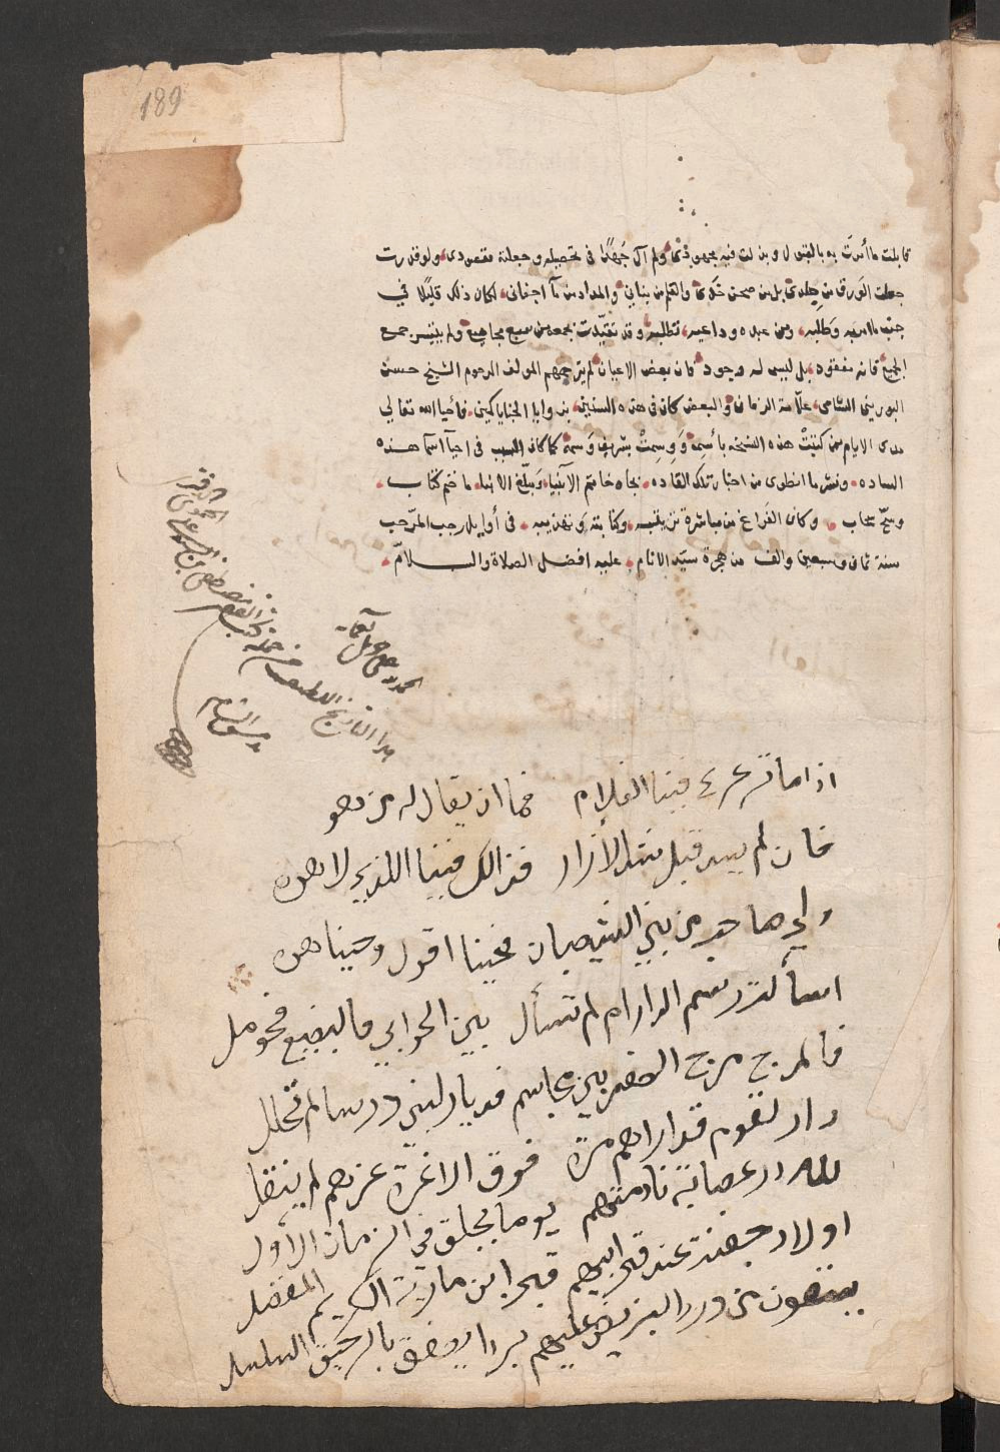 189
قابلت ما أمرت به بالقبول وبذلت فيه مجهودي ولم آل جهدًا في تحصيله وجعلته مقصودي ولو قدرت
جعلت الورق من جلدي بل من صحن خدي والقلم من بناني والمداد من مآ اجفاني لكان ذلك قليلا في
جنب وطلبه ومن عبده وداعيه تطلبه وقد تقيّدت بجمعه من سبع مجاميع ولم يتيسر جمع
الجميع فانه مفقود بل ليس له وجود فان بعض الاعيان لم يترجمهم المولف المرحوم الشيخ حسن
البوريني الشامي علّامة الزمان والبعض كان في هذه السنين بزوايا الخبايا كمين فأحيا الله تعالي
مدى الايام من كتبتْ هذه النسخة بأسمه ووسمتْ بشريف وسمه كما كان السبب في احيآ اسمآ هذه
الساده ونشر ما انطوى من اخبار تلك القاده بجاه خاتم الآنبيا ومبلّغ الانبا ما ختم كتاب
وسحّ سحاب وكان الفراغ من مباشرة تزييفه وكتابته وتهذيبه في أوايل رجب المرّجب
سنة ثمان وسبعين والف من هجرة سيّد الانام عليه افضل الصلاة والسلام
الحمد لله
هذا التاريخ اللطيف من
اذا ما ترعرع فينا الغلام فما ان يقال له من هو
فان لم يسد قبل شد الازار فذالك فينا الذي لا هوه
ولي صاحب من بني الشيصبان فحينا اقول وحينا هوه
اسألت رسم الدار ام لم تسأل بين الجوابي فالبضيع فحومل
فالمرج مرج الصفرين فجاسم فديار لبنى درسا لم تحلل
دار لقوم قد اراهم مرة فوق الاعزة عزهم لم ينقل
لله در عصابة نادمتهم يوما بجلق في الزمان الأول
اولاد جفنة عند قبر ابيهم قبر ابن مارية الكريم المفضل
يسقون من ورد البريص عليهم بردا يصفق بالرحيق السلسل